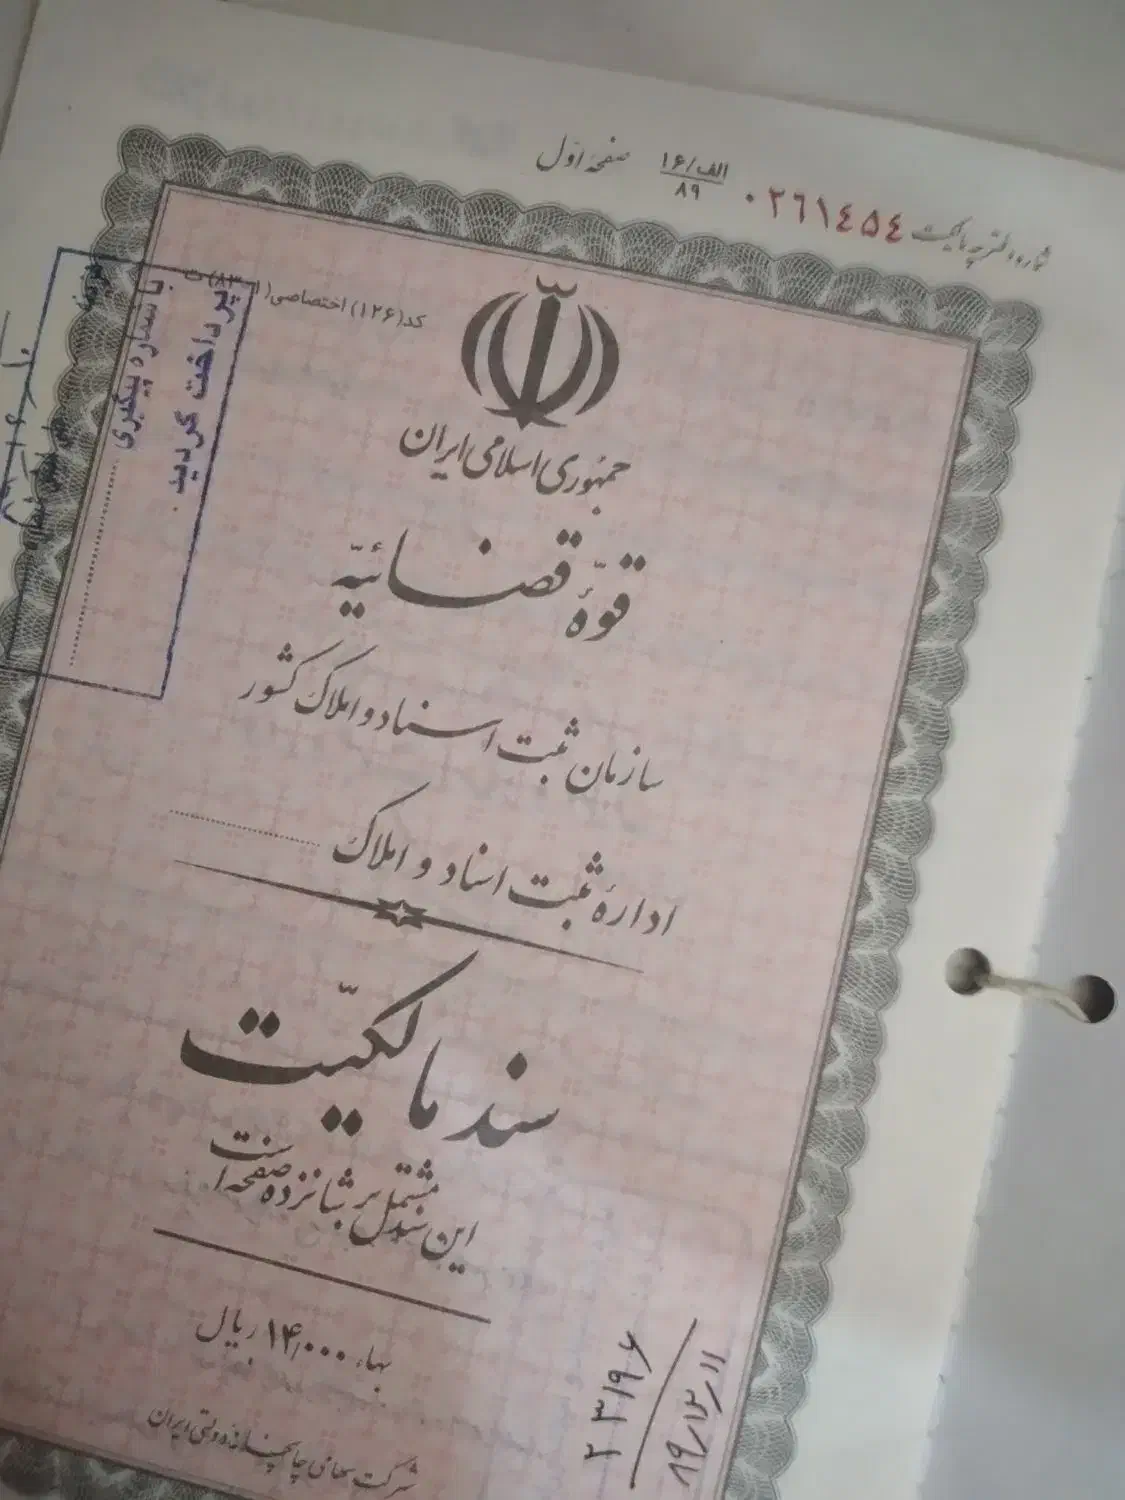 شماره دفترچه مالکیت ۰۲۶۱۴۵۴ الف/۱۶ ۸۹ صفحه اوّل
کد(۱۲۶) اختصاصی
جمهوری اسلامی ایران
قوّهٔ قضائیّه
سازمان ثبت اسناد و املاک کشور
ادارهٔ ثبت اسناد و املاک ....................
سند مالکیّت
این سند مشتمل بر شانزده صفحه است
بهاء ۱۴/۰۰۰ ریال
شرکت سهامی چاپخانه دولتی ایران
با شماره پیگیری ....................
پرداخت گردید.
۲۳۱۹۶
۸۹/۱۲/۱۱